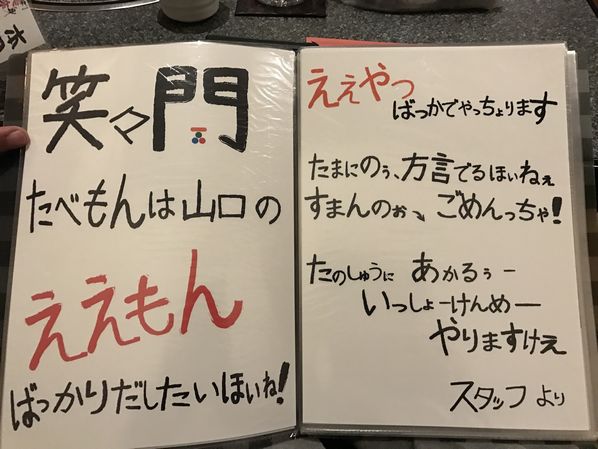 笑々門
たべもんは山口の
ええもん
ばっかりだしたいほいね!
ええやつ
ばっかでやっちょります
たまにのぅ、方言でるほいねぇ
すまんのぉ〜、ごめんっちゃ!
たのしゅうに あかるぅー
いっしょーけんめー
やりますけえ
スタッフより